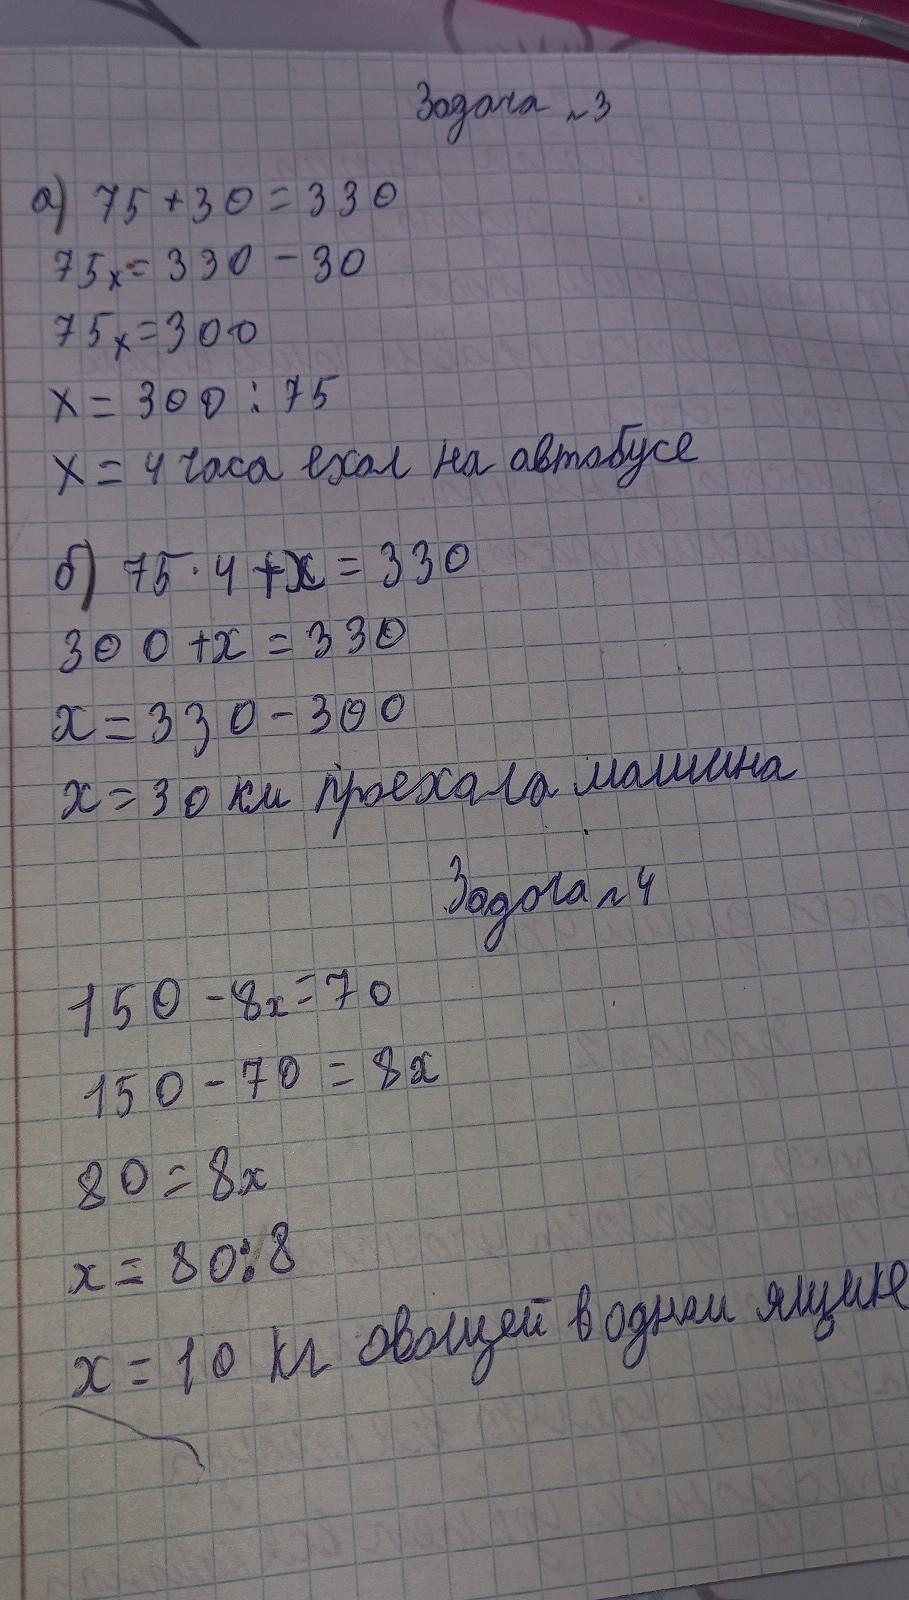 Задача №3
а) 75 + 30 = 330
75x = 330 - 30
75x = 300
x = 300 : 75
x = 4 часа ехал на автобусе
б) 75 · 4 + x = 330
300 + x = 330
x = 330 - 300
x = 30 км проехала машина
Задача №4
150 - 8x = 70
150 - 70 = 8x
80 = 8x
x = 80 : 8
x = 10 кг овощей в одном ящике